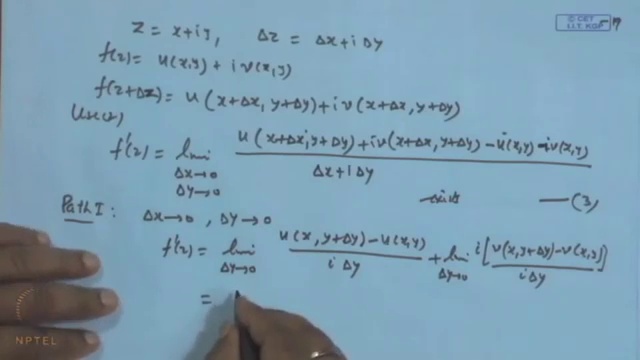 © CET
I.I.T. KGP
z = x+iy, Δz = Δx+iΔy
f(z) = u(x,y) + i v(x,y)
f(z+Δz) = u(x+Δx, y+Δy) + i v(x+Δx, y+Δy)
f'(z) = lim Δx→0 Δy→0 u(x+Δx, y+Δy) + iv(x+Δx, y+Δy) - u(x,y) - iv(x,y) / Δx+iΔy
exists — (3)
Path I: Δx→0, Δy→0
f'(z) = lim Δy→0 u(x, y+Δy) - u(x,y) / iΔy + lim Δy→0 i[v(x,y+Δy) - v(x,y)] / iΔy
=
NPTEL